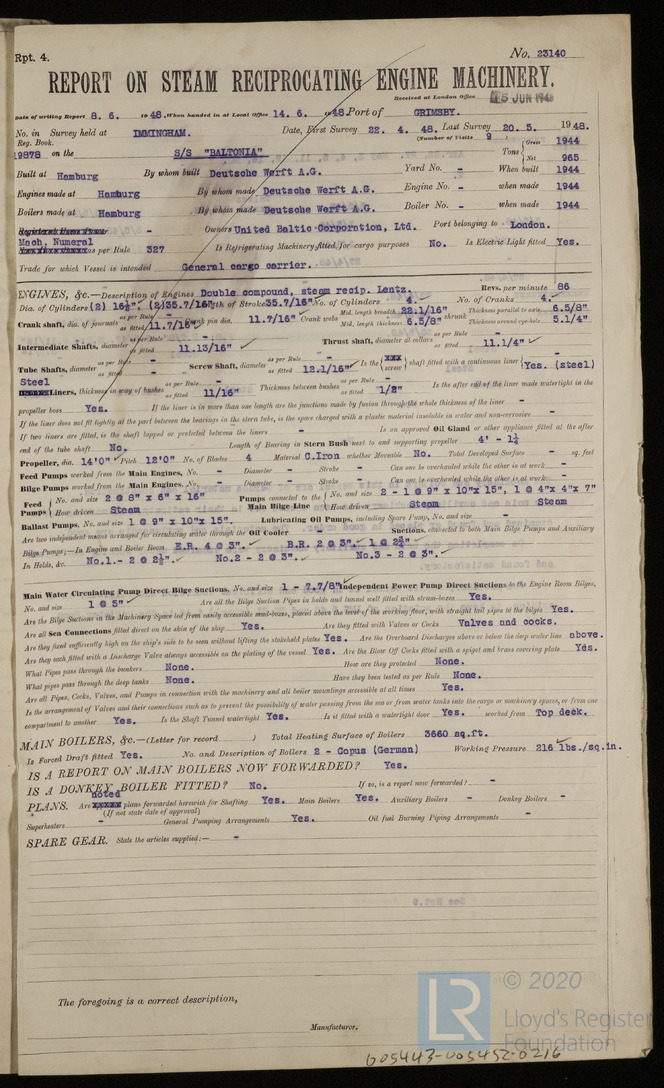 Rpt. 4.
No. 23140
REPORT ON STEAM RECIPROCATING ENGINE MACHINERY.
Received at London Office 15 JUN 1948
Date of writing Report 8. 6. 1948. When handed in at Local Office 14. 6. 1948. Port of GRIMSBY.
No. in Survey held at IMMINGHAM. Date, First Survey 22. 4. 48. Last Survey 20. 5. 1948.
Reg. Book. (Number of Visits 9)
19878 on the S/S "BALTONIA" Tons { Gross 1944 Net 965
Built at Hamburg By whom built Deutsche Werft A.G. Yard No. - When built 1944
Engines made at Hamburg By whom made Deutsche Werft A.G. Engine No. - when made 1944
Boilers made at Hamburg By whom made Deutsche Werft A.G. Boiler No. - when made 1944
- Owners United Baltic Corporation, Ltd. Port belonging to London.
Mach. Numeral as per Rule 327 Is Refrigerating Machinery fitted for cargo purposes No. Is Electric Light fitted Yes.
Trade for which Vessel is intended General cargo carrier.
ENGINES, &c.—Description of Engines Double compound, steam recip. Lentz. Revs. per minute 86
Dia. of Cylinders (2) 16½", (2) 35.7/16" Length of Stroke 35.7/16" No. of Cylinders 4. No. of Cranks 4.
Crank shaft, dia. of journals as per Rule - as fitted 11.7/16" Crank pin dia. 11.7/16" Crank webs Mid. length breadth 22.1/16" Mid. length thickness 6.5/8" shrunk Thickness parallel to axis 6.5/8" Thickness around eye-hole 5.1/4"
Intermediate Shafts, diameter as per Rule - as fitted 11.13/16" Thrust shaft, diameter at collars as per Rule - as fitted 11.1/4"
Tube Shafts, diameter as per Rule - as fitted - Screw Shaft, diameter as per Rule - as fitted 12.1/16" Is the { screw } shaft fitted with a continuous liner { Yes. (steel)
Steel Liners, thickness in way of bushes as per Rule - as fitted 11/16" Thickness between bushes as per Rule - as fitted 1/2" Is the after end of the liner made watertight in the
propeller boss Yes. If the liner is in more than one length are the junctions made by fusion through the whole thickness of the liner -
If the liner does not fit tightly at the part between the bearings in the stern tube, is the space charged with a plastic material insoluble in water and non-corrosive -
If two liners are fitted, is the shaft lapped or protected between the liners - Is an approved Oil Gland or other appliance fitted at the after
end of the tube shaft No. Length of Bearing in Stern Bush next to and supporting propeller 4' - 1¼
Propeller, dia. 14'0" Pitch 12'0" No. of Blades 4 Material C.Iron whether Moveable No. Total Developed Surface - sq. feet
Feed Pumps worked from the Main Engines, No. - Diameter - Stroke - Can one be overhauled while the other is at work -
Bilge Pumps worked from the Main Engines, No. - Diameter - Stroke - Can one be overhauled while the other is at work -
Feed Pumps { No. and size 2 @ 8" x 6" x 16" Pumps connected to the Main Bilge Line { No. and size 2 - 1 @ 9" x 10"x 15", 1 @ 4"x 4"x 7"
How driven Steam How driven Steam Steam
Ballast Pumps, No. and size 1 @ 9" x 10"x 15". Lubricating Oil Pumps, including Spare Pump, No. and size -
Are two independent means arranged for circulating water through the Oil Cooler - Suctions, connected to both Main Bilge Pumps and Auxiliary
Bilge Pumps;—In Engine and Boiler Room E.R. 4 @ 3". B.R. 2 @ 3". 1 @ 2½"
In Holds, &c. No.1.- 2 @ 2½". No.2 - 2 @ 3". No.3 - 2 @ 3".
Main Water Circulating Pump Direct Bilge Suctions, No. and size 1 - 7.7/8" Independent Power Pump Direct Suctions to the Engine Room Bilges,
No. and size 1 @ 5" Are all the Bilge Suction Pipes in holds and tunnel well fitted with strum-boxes Yes.
Are the Bilge Suctions in the Machinery Space led from easily accessible mud-boxes, placed above the level of the working floor, with straight tail pipes to the bilges Yes.
Are all Sea Connections fitted direct on the skin of the ship Yes. Are they fitted with Valves or Cocks Valves and cocks.
Are they fixed sufficiently high on the ship's side to be seen without lifting the stokehold plates Yes. Are the Overboard Discharges above or below the deep water line above.
Are they each fitted with a Discharge Valve always accessible on the plating of the vessel Yes. Are the Blow Off Cocks fitted with a spigot and brass covering plate Yes.
What Pipes pass through the bunkers None. How are they protected None.
What pipes pass through the deep tanks None. Have they been tested as per Rule None.
Are all Pipes, Cocks, Valves, and Pumps in connection with the machinery and all boiler mountings accessible at all times Yes.
Is the arrangement of Valves and their connections such as to prevent the possibility of water passing from the sea or from water tanks into the cargo or machinery spaces, or from one
compartment to another Yes. Is the Shaft Tunnel watertight Yes. Is it fitted with a watertight door Yes. worked from Top deck.
MAIN BOILERS, &c.—(Letter for record ) Total Heating Surface of Boilers 3660 sq.ft.
Is Forced Draft fitted Yes. No. and Description of Boilers 2 - Copus (German) Working Pressure 216 lbs./sq.in.
IS A REPORT ON MAIN BOILERS NOW FORWARDED? Yes.
IS A DONKEY BOILER FITTED? No. If so, is a report now forwarded? -
PLANS. Are noted plans forwarded herewith for Shafting Yes. Main Boilers Yes. Auxiliary Boilers - Donkey Boilers -
(If not state date of approval)
Superheaters - General Pumping Arrangements Yes. Oil fuel Burning Piping Arrangements -
SPARE GEAR. State the articles supplied:— -
The foregoing is a correct description,
Manufacturer.
LR
© 2020
Lloyd's Register
Foundation
005443-005452-0216